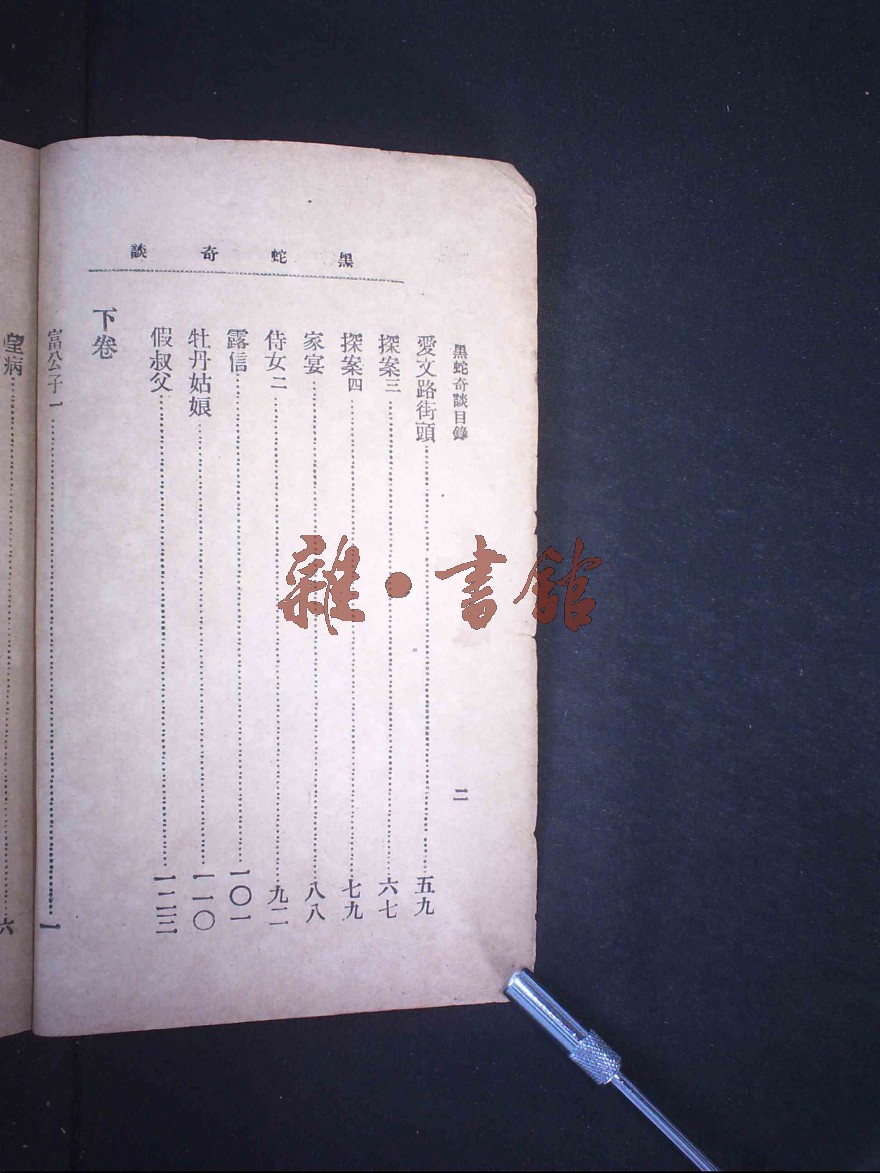 黑蛇奇談
黑蛇奇談目錄
二
愛文路街頭……五九
探案三……六七
探案四……七九
家宴……八八
侍女二……九二
露信……一〇一
牡丹姑娘……一一〇
假叔父……一二三
下卷
富公子一……一
望病……六
雜·書館